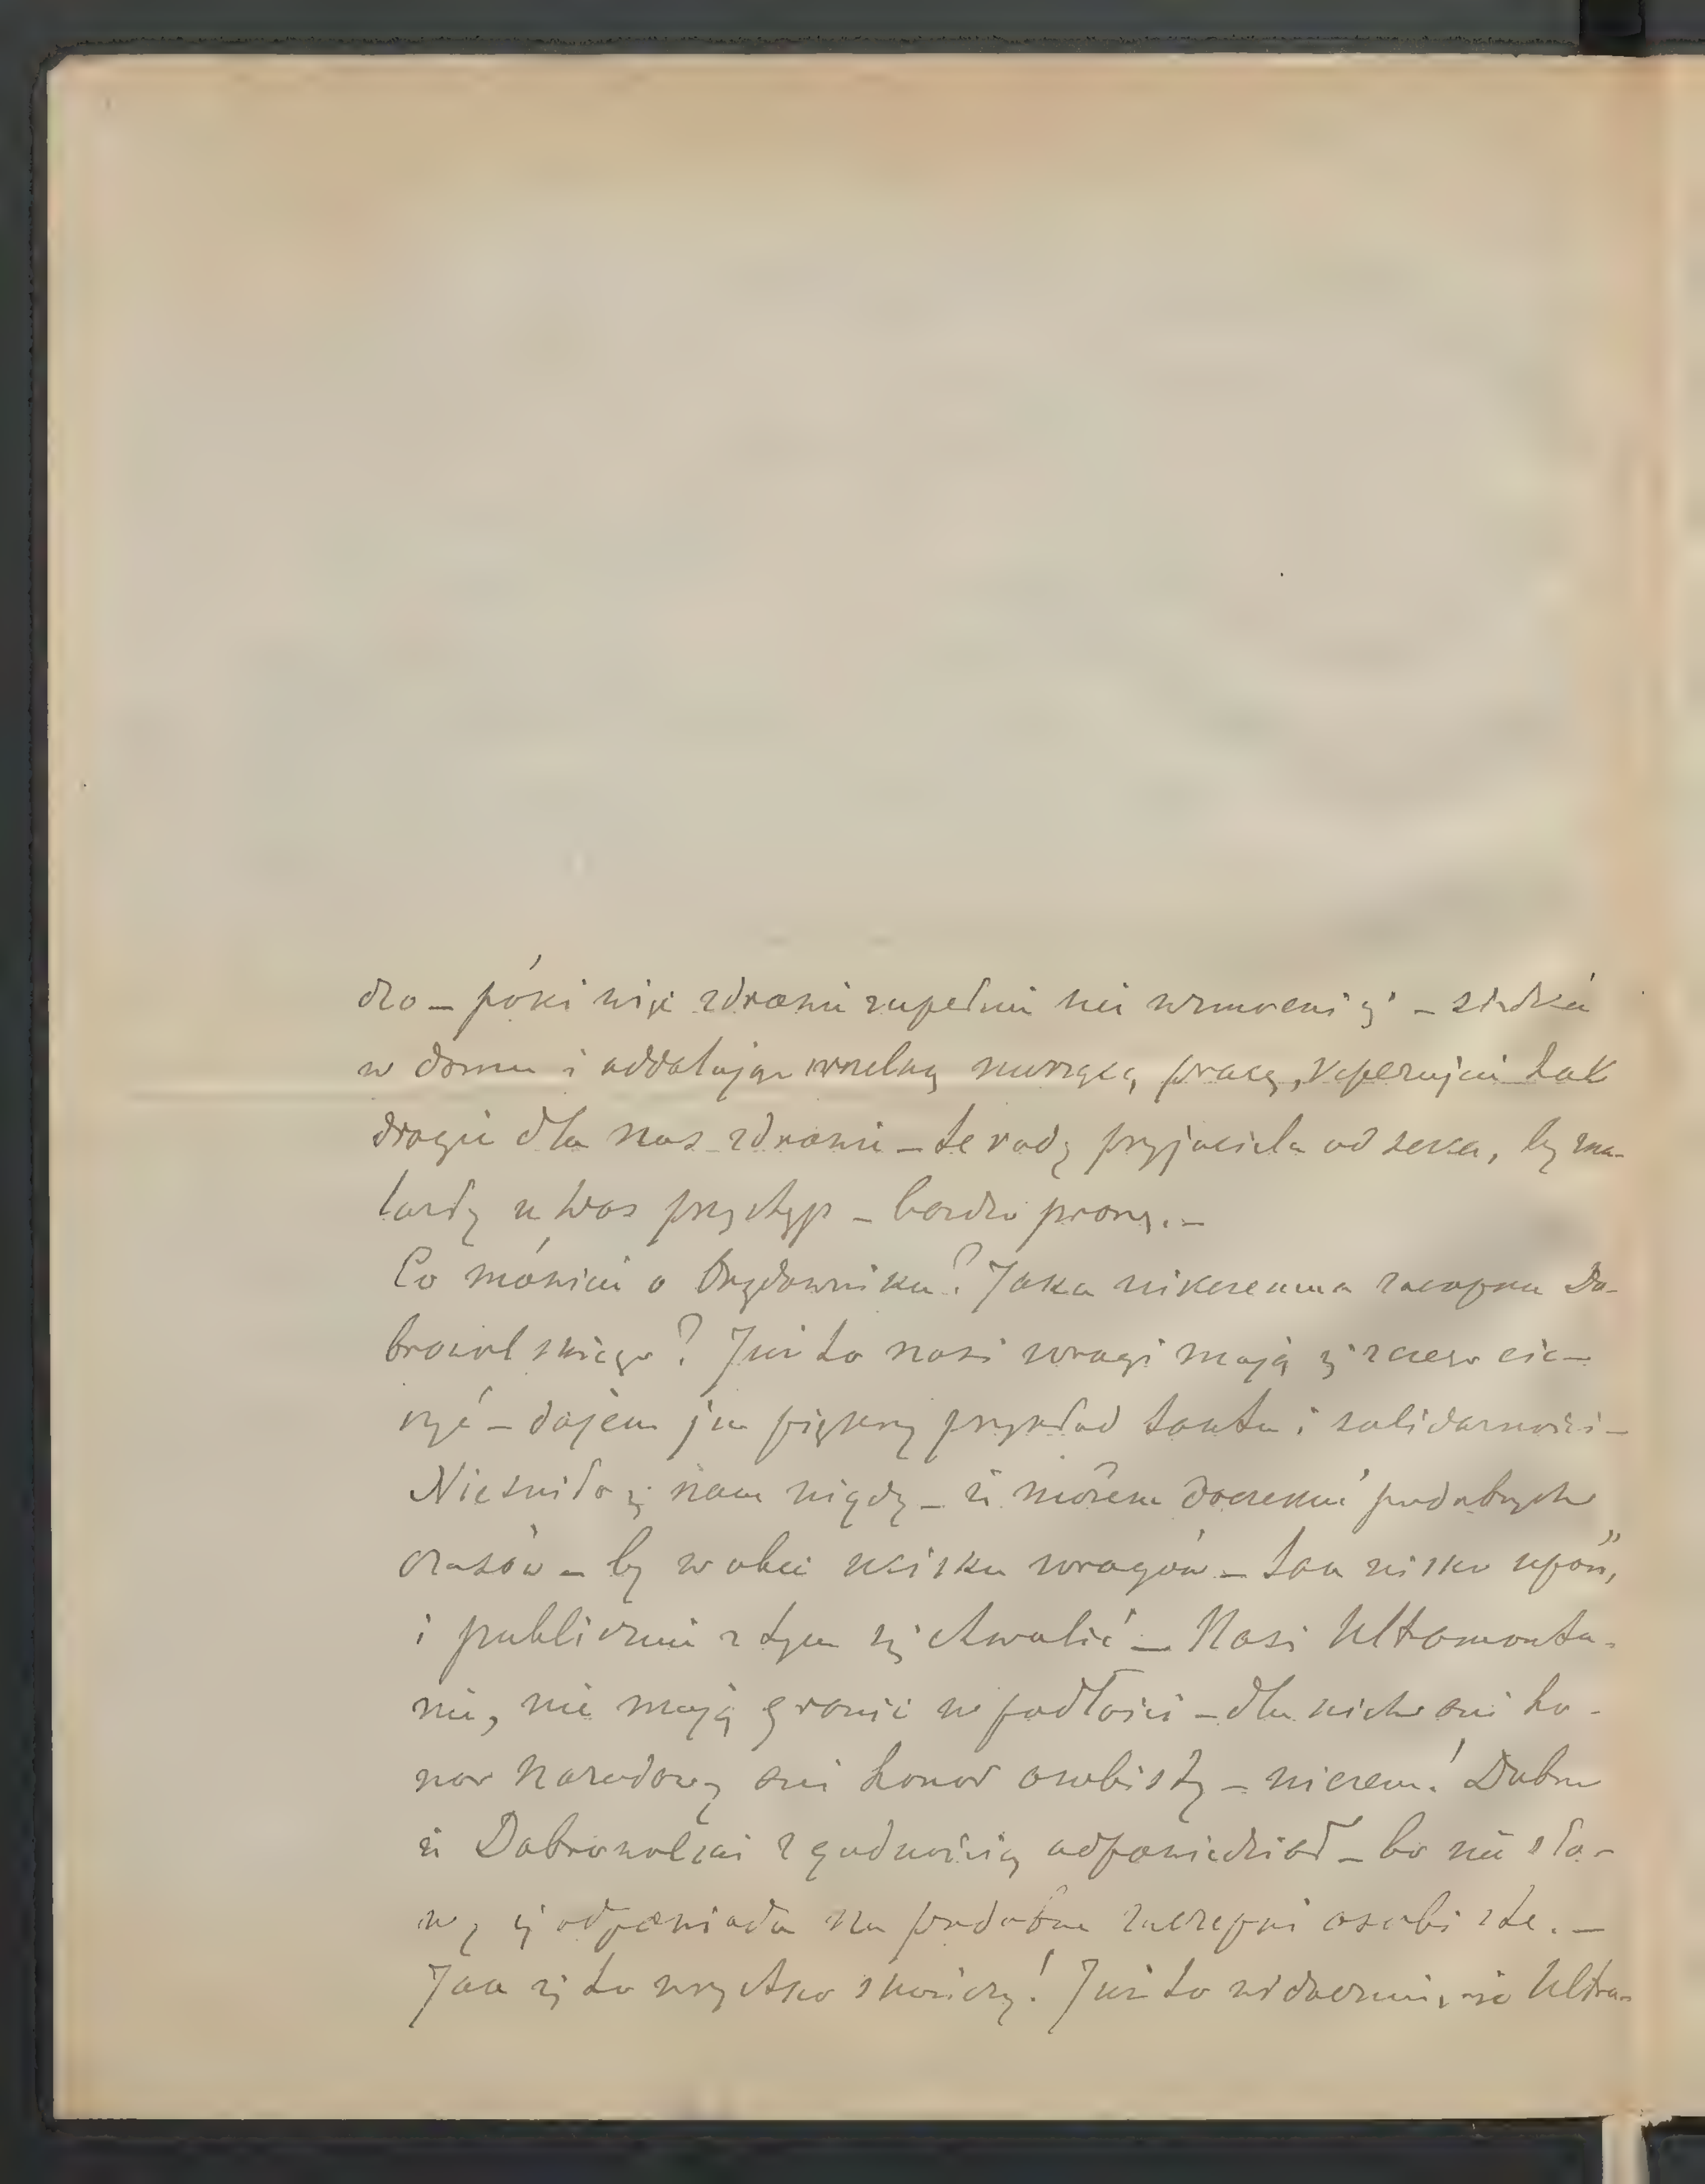 dzo – póki więc zdrowie zupełnie nie wzmocni się – siedzieć
w domu i oddalając wszelką nurzącą pracę, szperujcie tak
drogie dla nas zdrowie – te rady przyjaciela od serca, by zna-
lazły u Was przystęp – bardzo proszę. –
Co mówicie o Orędowniku? Jaka nikczemna zaczepka Do-
browolskiego? Już to nasi wrogi mają się z czego cie-
szyć – dajem im piękny przykład taktu i solidarności –
Nie śniło się nam nigdy – że możem doczekać podobnych
czasów – by w obec ucisku wrogów – tak nisko upaść,
i publicznie z tym się chwalić – Nasi Ultramonta-
nie, nie mają granic w podłości – dla nich ani ho-
nor narodowy ani honor osobisty – niczem! Dobrze
że Dobrowolski z godnością odpowiedział – bo nie sło-
wy się odpowiada na podobne zaczepki osobiste. –
Jak się to wszystko skończy! Już to widocznie, że Ultra-